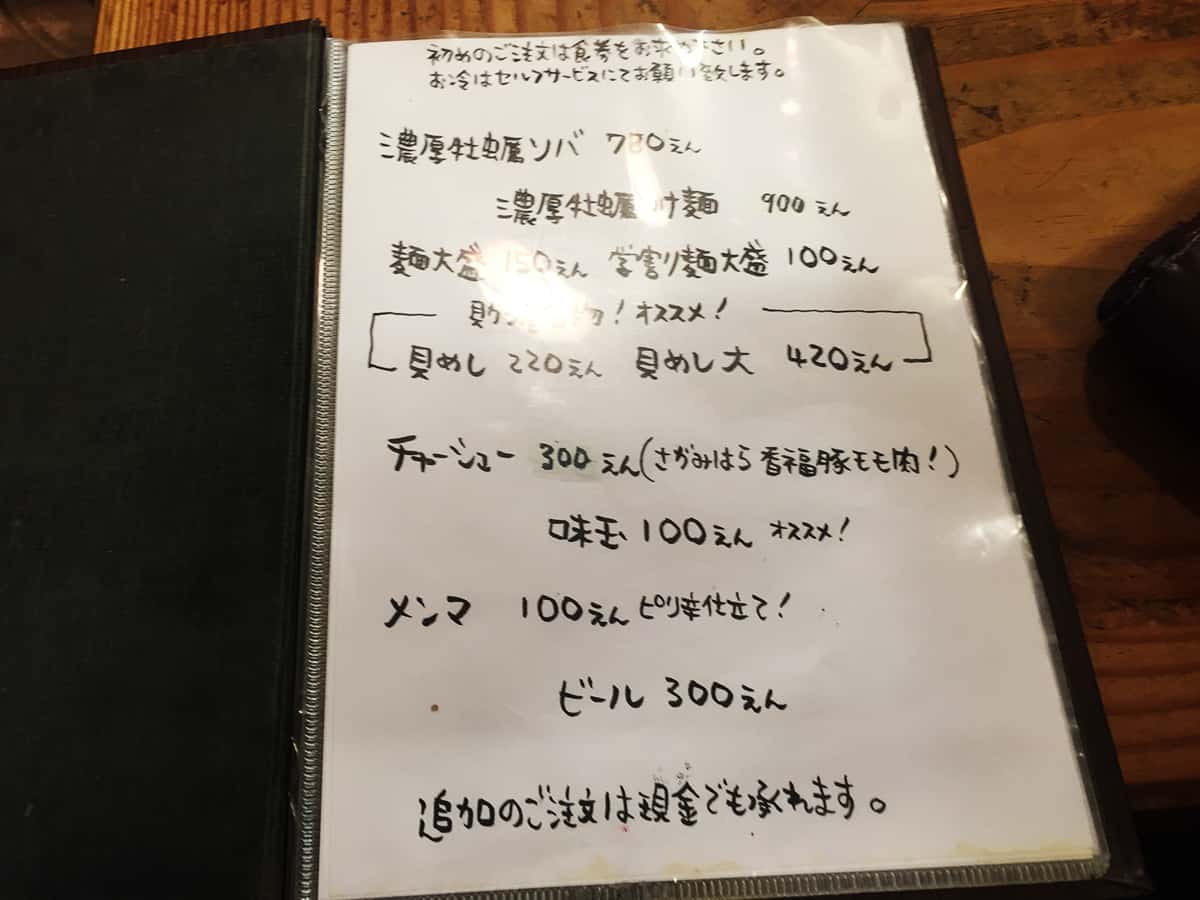 初めのご注文は食券をお求め下さい。
お冷はセルフサービスにてお願い致します。
濃厚牡蠣ソバ 780えん
濃厚牡蠣つけ麺 900えん
麺大盛 150えん 学割り麺大盛 100えん
！オススメ！
貝めし 220えん 貝めし大 420えん
チャーシュー 300えん(さがみはら香福豚モモ肉！)
味玉 100えん オススメ！
メンマ 100えん ピリ辛仕立て！
ビール 300えん
追加のご注文は現金でも承れます。